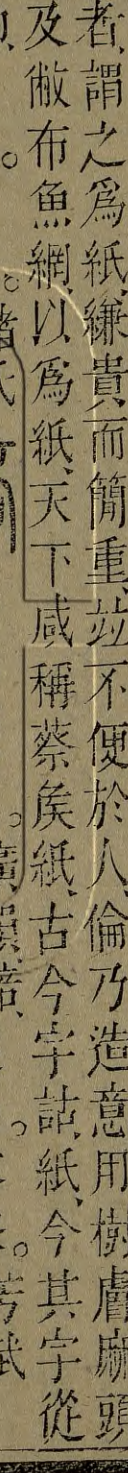 者、謂之爲紙、縑貴、而簡重、竝不便於人、倫乃造意用樹膚麻頭
及敝布魚網、以爲紙、天下咸稱蔡矦紙、古今字詁、紙、今其字從